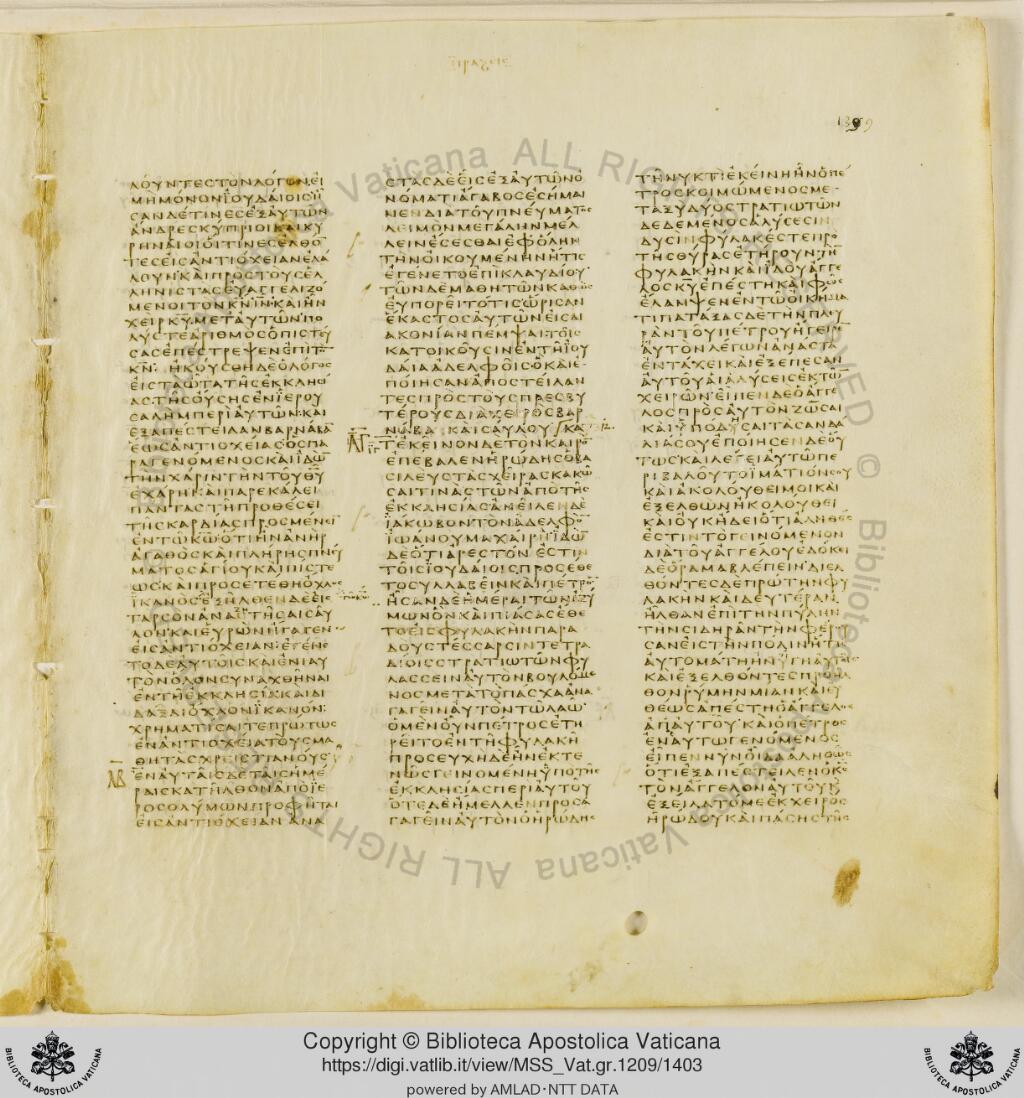 1399
ΛΟΥΝΤΕϹΤΟΝΛΟΓΟΝΕΙ
ΜΗΜΟΝΟΝΪΟΥΔΑΙΟΙϹΗ
ϹΑΝΔΕΤΙΝΕϹΕΞΑΥΤΩΝ
ΑΝΔΡΕϹΚΥΠΡΙΟΙΚΑΙΚΥ
ΡΗΝΑΙΟΙΟΙΤΙΝΕϹΕΛΘΟ
ΤΕϹΕΙϹΑΝΤΙΟΧΕΙΑΝΕΛΑ
ΛΟΥΝΚΑΙΠΡΟϹΤΟΥϹΕΛ
ΛΗΝΙϹΤΑϹΕΥΑΓΓΕΛΙΖΟ
ΜΕΝΟΙΤΟΝΚΝΙΝΚΑΙΗΝ
ΧΕΙΡΚΥΜΕΤΑΥΤΩΝΠΟ
ΛΥϹΤΕΑΡΙΘΜΟϹΟΠΙϹΤΕΥ
ϹΑϹΕΠΕϹΤΡΕΨΕΝΕΠΙΤΟ
ΚΝ ΗΚΟΥϹΘΗΔΕΟΛΟΓΟϹ
ΕΙϹΤΑΩΤΑΤΗϹΕΚΚΛΗϹΙ
ΑϹΤΗϹΟΥϹΗϹΕΝΪΕΡΟΥ
ϹΑΛΗΜΠΕΡΙΑΥΤΩΝΚΑΙ
ΕΞΑΠΕϹΤΕΙΛΑΝΒΑΡΝΑΒΑ
ΕΩϹΑΝΤΙΟΧΕΙΑϹΟϹΠΑ
ΡΑΓΕΝΟΜΕΝΟϹΚΑΙΪΔΩ
ΤΗΝΧΑΡΙΝΤΗΝΤΟΥΘΥ
ΕΧΑΡΗΚΑΙΠΑΡΕΚΑΛΕΙ
ΠΑΝΤΑϹΤΗΠΡΟΘΕϹΕΙ
ΤΗϹΚΑΡΔΙΑϹΠΡΟϹΜΕΝΕΙ
ΕΝΤΩΚΩΟΤΙΗΝΑΝΗΡ
ΑΓΑΘΟϹΚΑΙΠΛΗΡΗϹΠΝΕΥ
ΜΑΤΟϹΑΓΙΟΥΚΑΙΠΙϹΤΕ
ΩϹΚΑΙΠΡΟϹΕΤΕΘΗΟΧΛΟϹ
ΪΚΑΝΟϹΕΞΗΛΘΕΝΔΕΕΙϹ
ΤΑΡϹΟΝΑΝΑϹΤΗϹΑΙϹΑΥ
ΛΟΝΚΑΙΕΥΡΩΝΗΓΑΓΕΝ
ΕΙϹΑΝΤΙΟΧΕΙΑΝΕΓΕΝΕ
ΤΟΔΕΑΥΤΟΙϹΚΑΙΕΝΙΑΥ
ΤΟΝΟΛΟΝϹΥΝΑΧΘΗΝΑΙ
ΕΝΤΗΕΚΚΛΗϹΙΑΚΑΙΔΙ
ΔΑΞΑΙΟΧΛΟΝΪΚΑΝΟΝ
ΧΡΗΜΑΤΙϹΑΙΤΕΠΡΩΤΩϹ
ΕΝΑΝΤΙΟΧΕΙΑΤΟΥϹΜΑ
ΘΗΤΑϹΧΡΕΙϹΤΙΑΝΟΥϹ
ΕΝΑΥΤΑΙϹΔΕΤΑΙϹΗΜΕ
ΡΑΙϹΚΑΤΗΛΘΟΝΑΠΟΪΕ
ΡΟϹΟΛΥΜΩΝΠΡΟΦΗΤΑΙ
ΕΙϹΑΝΤΙΟΧΕΙΑΝ ΑΝΑ
ϹΤΑϹΔΕΕΙϹΕΞΑΥΤΩΝΟ
ΝΟΜΑΤΙΑΓΑΒΟϹΕϹΗΜΑΙ
ΝΕΝΔΙΑΤΟΥΠΝΕΥΜΑΤΟϹ
ΛΕΙΜΟΝΜΕΓΑΛΗΝΜΕΛ
ΛΕΙΝΕϹΕϹΘΑΙΕΦΟΛΗΝ
ΤΗΝΟΙΚΟΥΜΕΝΗΝΗΤΙϹ
ΕΓΕΝΕΤΟΕΠΙΚΛΑΥΔΙΟΥ
ΤΩΝΔΕΜΑΘΗΤΩΝΚΑΘΩϹ
ΕΥΠΟΡΕΙΤΟΤΙϹΩΡΙϹΑΝ
ΕΚΑϹΤΟϹΑΥΤΩΝΕΙϹΔΙ
ΑΚΟΝΙΑΝΠΕΜΨΑΙΤΟΙϹ
ΚΑΤΟΙΚΟΥϹΙΝΕΝΤΗΪΟΥ
ΔΑΙΑΑΔΕΛΦΟΙϹΟΚΑΙΕ
ΠΟΙΗϹΑΝΑΠΟϹΤΕΙΛΑΝ
ΤΕϹΠΡΟϹΤΟΥϹΠΡΕϹΒΥ
ΤΕΡΟΥϹΔΙΑΧΕΙΡΟϹΒΑΡ
ΝΑΒΑ ΚΑΙϹΑΥΛΟΥ ΚΑ
ΤΕΚΕΙΝΟΝΔΕΤΟΝΚΑΙΡΟ
ΕΠΕΒΑΛΕΝΗΡΩΔΗϹΟΒΑ
ϹΙΛΕΥϹΤΑϹΧΕΙΡΑϹΚΑΚΩ
ϹΑΙΤΙΝΑϹΤΩΝΑΠΟΤΗϹ
ΕΚΚΛΗϹΙΑϹΑΝΕΙΛΕΝΔΕ
ΪΑΚΩΒΟΝΤΟΝΑΔΕΛΦΟ
ΪΩΑΝΟΥΜΑΧΑΙΡΗΪΔΩ
ΔΕΟΤΙΑΡΕϹΤΟΝΕϹΤΙΝ
ΤΟΙϹΪΟΥΔΑΙΟΙϹΠΡΟϹΕΘΕ
ΤΟϹΥΛΛΑΒΕΙΝΚΑΙΠΕΤΡΟ
ΗϹΑΝΔΕΗΜΕΡΑΙΤΩΝΑΖΥ
ΜΩΝΟΝΚΑΙΠΙΑϹΑϹΕΘΕ
ΤΟΕΙϹΦΥΛΑΚΗΝΠΑΡΑ
ΔΟΥϹΤΕϹϹΑΡϹΙΝΤΕΤΡΑ
ΔΙΟΙϹϹΤΡΑΤΙΩΤΩΝΦΥ
ΛΑϹϹΕΙΝΑΥΤΟΝΒΟΥΛΟΜΕ
ΝΟϹΜΕΤΑΤΟΠΑϹΧΑΑΝΑ
ΓΑΓΕΙΝΑΥΤΟΝΤΩΛΑΩ
ΟΜΕΝΟΥΝΠΕΤΡΟϹΕΤΗ
ΡΕΙΤΟΕΝΤΗΦΥΛΑΚΗ
ΠΡΟϹΕΥΧΗΔΕΗΝΕΚΤΕ
ΝΩϹΓΕΙΝΟΜΕΝΗΥΠΟΤΗϹ
ΕΚΚΛΗϹΙΑϹΠΕΡΙΑΥΤΟΥ
ΟΤΕΔΕΗΜΕΛΛΕΝΠΡΟϹΑ
ΓΑΓΕΙΝΑΥΤΟΝΟΗΡΩΔΗϹ
ΤΗΝΥΚΤΙΕΚΕΙΝΗΗΝΟΠΕ
ΤΡΟϹΚΟΙΜΩΜΕΝΟϹΜΕ
ΤΑΞΥΔΥΟϹΤΡΑΤΙΩΤΩΝ
ΔΕΔΕΜΕΝΟϹΑΛΥϹΕϹΙΝ
ΔΥϹΙΝΦΥΛΑΚΕϹΤΕΠΡΟ
ΤΗϹΘΥΡΑϹΕΤΗΡΟΥΝΤΗ
ΦΥΛΑΚΗΝΚΑΙΪΔΟΥΑΓΓΕ
ΛΟϹΚΥΕΠΕϹΤΗΚΑΙΦΩϹ
ΕΛΑΜΨΕΝΕΝΤΩΟΙΚΗΜΑ
ΤΙΠΑΤΑΞΑϹΔΕΤΗΝΠΛΕΥ
ΡΑΝΤΟΥΠΕΤΡΟΥΗΓΕΙΡΕ
ΑΥΤΟΝΛΕΓΩΝΑΝΑϹΤΑ
ΕΝΤΑΧΕΙΚΑΙΕΞΕΠΕϹΑΝ
ΑΥΤΟΥΑΙΑΛΥϹΕΙϹΕΚΤΩ
ΧΕΙΡΩΝΕΙΠΕΝΔΕΟΑΓΓΕ
ΛΟϹΠΡΟϹΑΥΤΟΝΖΩϹΑΙ
ΚΑΙΥΠΟΔΥϹΑΙΤΑϹΑΝΔΑ
ΛΙΑϹΟΥΕΠΟΙΗϹΕΝΔΕΟΥ
ΤΩϹΚΑΙΛΕΓΕΙΑΥΤΩΠΕ
ΡΙΒΑΛΟΥΤΟΪΜΑΤΙΟΝϹΟΥ
ΚΑΙΑΚΟΛΟΥΘΕΙΜΟΙΚΑΙ
ΕΞΕΛΘΩΝΗΚΟΛΟΥΘΕΙ
ΚΑΙΟΥΚΗΔΕΙΟΤΙΑΛΗΘΕϹ
ΕϹΤΙΝΤΟΓΕΙΝΟΜΕΝΟΝ
ΔΙΑΤΟΥΑΓΓΕΛΟΥΕΔΟΚΕΙ
ΔΕΟΡΑΜΑΒΛΕΠΕΙΝΔΙΕΛ
ΘΟΝΤΕϹΔΕΠΡΩΤΗΝΦΥ
ΛΑΚΗΝΚΑΙΔΕΥΤΕΡΑΝ
ΗΛΘΑΝΕΠΙΤΗΝΠΥΛΗΝ
ΤΗΝϹΙΔΗΡΑΝΤΗΝΦΕΡΟΥ
ϹΑΝΕΙϹΤΗΝΠΟΛΙΝΗΤΙϹ
ΑΥΤΟΜΑΤΗΗΝΥΓΗΑΥΤΟΙϹ
ΚΑΙΕΞΕΛΘΟΝΤΕϹΠΡΟΗΛ
ΘΟΝΡΥΜΗΝΜΙΑΝΚΑΙΕΥ
ΘΕΩϹΑΠΕϹΤΗΟΑΓΓΕΛΟϹ
ΑΠΑΥΤΟΥΚΑΙΟΠΕΤΡΟϹ
ΕΝΑΥΤΩΓΕΝΟΜΕΝΟϹ
ΕΙΠΕΝΝΥΝΟΙΔΑΑΛΗΘΩϹ
ΟΤΙΕΞΑΠΕϹΤΕΙΛΕΝΟΚϹ
ΤΟΝΑΓΓΕΛΟΝΑΥΤΟΥΚ
ΕΞΕΙΛΑΤΟΜΕΕΚΧΕΙΡΟϹ
ΗΡΩΔΟΥΚΑΙΠΑϹΗϹΤΗϹ
Copyright © Biblioteca Apostolica Vaticana
https://digi.vatlib.it/view/MSS_Vat.gr.1209/1403
powered by AMLAD·NTT DATA